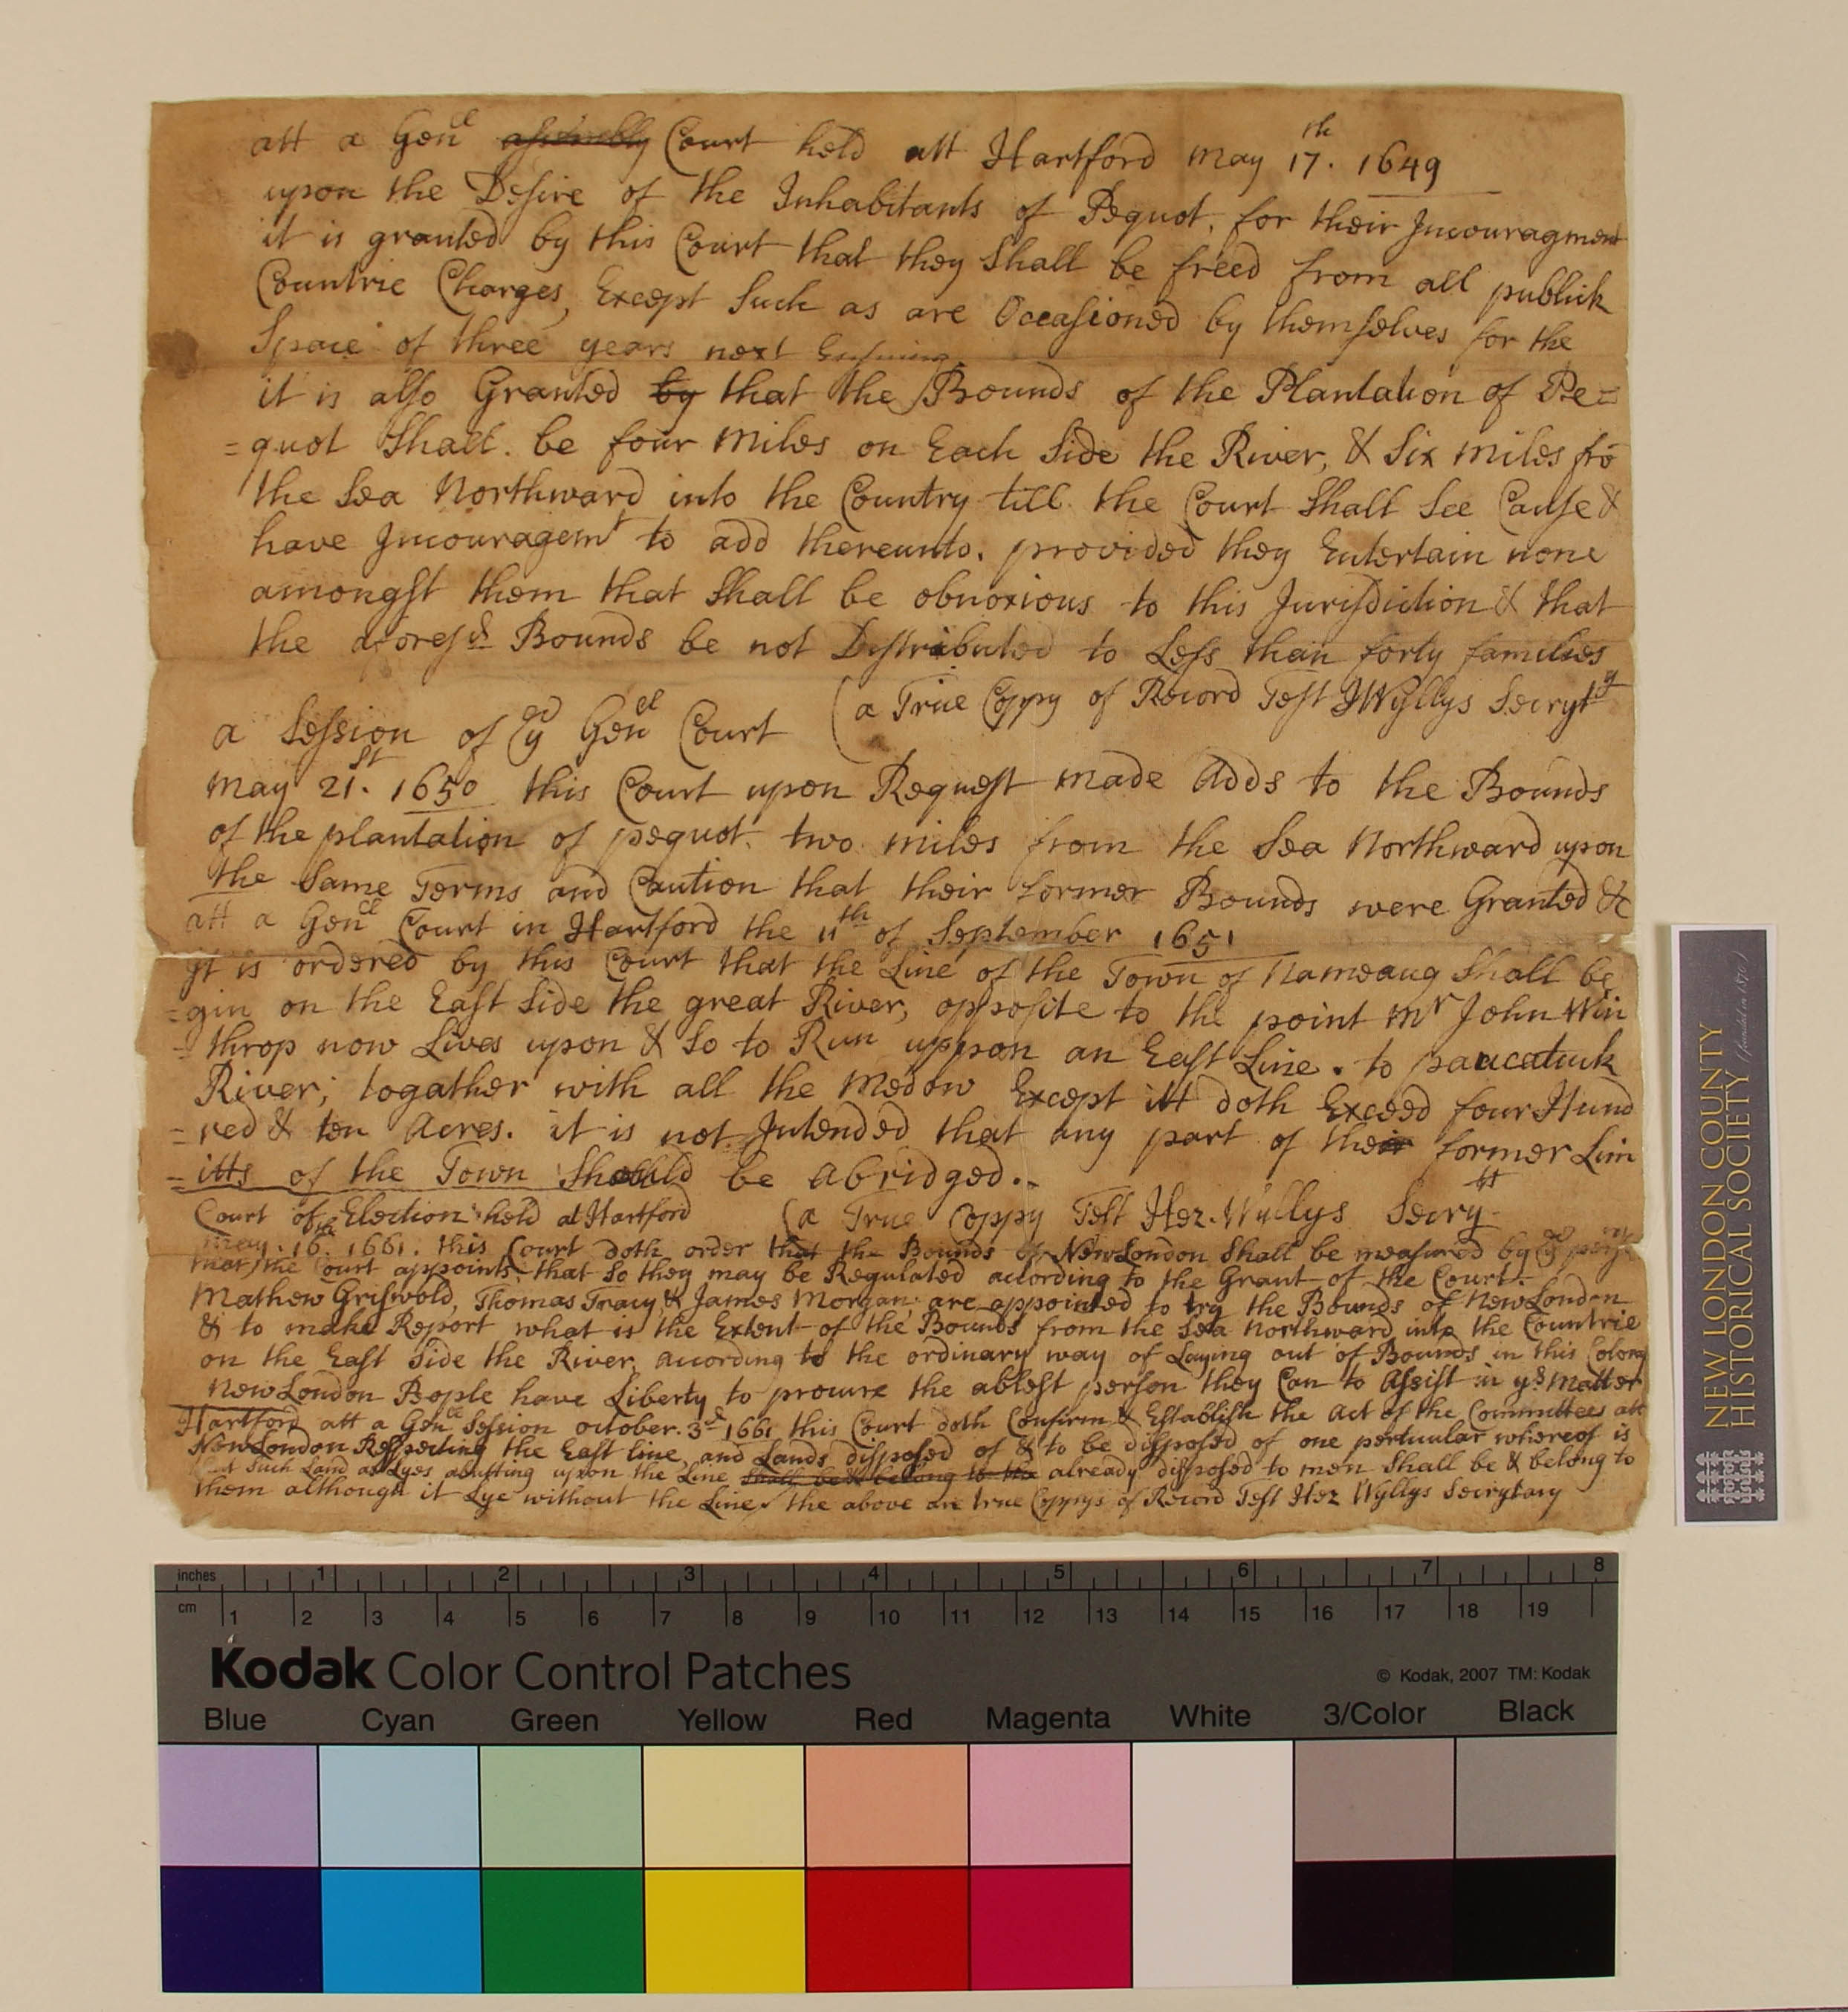 att a Gen^ll ~~assembly~~ Court held att Hartford may 17^th. 1649
upon the Desire of the Inhabitants of Pequot, for their Incouragment
it is granted by this Court that they Shall be freed from all publick
Countrie Charges, Except Such as are Occasioned by themselves for the
Space of three years next Ensuing
it is also Granted ~~by~~ that the Bounds of the Plantation of Pe=
=quot Shall. be four miles on Each Side the River, & Six miles frō
the Sea Northward into the Country till the Court Shall See Cause &
have Incouragem^t to add thereunto. provided they Entertain none
amongst them that Shall be obnoxious to this Jurisdiction & that
the afores^d Bounds be not Distributed to Less than forty families
(a True Coppy of Record Test HWyllys Secryt^y
a Session of y^e Gen^ll Court
may 21^st. 1650 this Court upon Request made Adds to the Bounds
of the plantation of pequot. two miles from the Sea Northward upon
the Same Terms and Caution that their former Bounds were Granted &c
att a Gen^ll Court in Hartford the 11^th of September 1651
It is ordered by this Court that the Line of the Town of Nameaug Shall be
=gin on the East Side the great River, opposite to the point m^r John Win
=throp now Lives upon & So to Run uppon an East Line. to paucatuck
River; togather with all the medow Except itt doth Exceed four Hund
=red & ten Acres. it is not Intended that any part of their former Lim
=itts of the Town Should be abridged.
Court of Election held at Hartford (a True Coppy Test Hez. Wyllys Secry
may. 16^th. 1661. this Court doth order that the Bounds of NewLondon Shall be measured by y^e
that the Court appoints, that So they may be Regulated according to the Grant of the Court.
Mathew Griswold, Thomas Tracy, & James Morgan are appointed to try the Bounds of NewLondon
& to make Report what is the Extent of the Bounds from the Sea Northward into the Countrie
on the East Side the River, according to the ordinary way of Laying out of Bounds in this Colony
NewLondon People have Liberty to procure the ablest person they Can to Assist in y^s Matter
Hartford att a Gen^ll Session october. 3^d 1661 this Court doth Confirm & Establish the Act of the Committees att
NewLondon Respecting the East line, and Lands disposed of & to be disposed of one perticular whereof is
that Such Land as Lyes abutting upon the Line ~~Shall be & belong to the~~ already disposed to men Shall be & belong to
them although it Lye without the Line, the above are true Coppys of Record Test Hez Wyllys Secrytary
NEW LONDON COUNTY
HISTORICAL SOCIETY (founded in 1870)
inches 1 2 3 4 5 6 7 8
cm 1 2 3 4 5 6 7 8 9 10 11 12 13 14 15 16 17 18 19
Kodak Color Control Patches
© Kodak, 2007 TM: Kodak
Blue Cyan Green Yellow Red Magenta White 3/Color Black